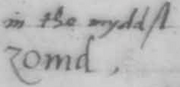 in the myddst
zomd,